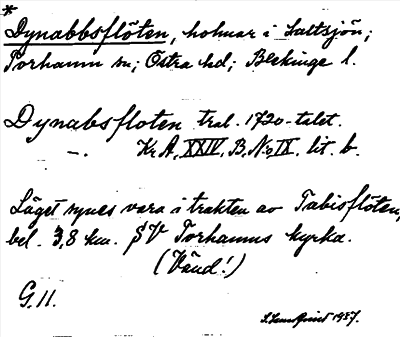 *
Dynabbsflöten, holmar i Saltsjön;
Torhamn sn; Östra hd; Blekinge l.
Dynabsfloten tral. 1720-talet.
—. Kr. A, XXIV, B. No IX. lit. b.
Läget synes vara i trakten av Tabisflöten,
bel. 3,8 km. SV Torhamns kyrka.
(Vänd!)
G. 11.
1927.